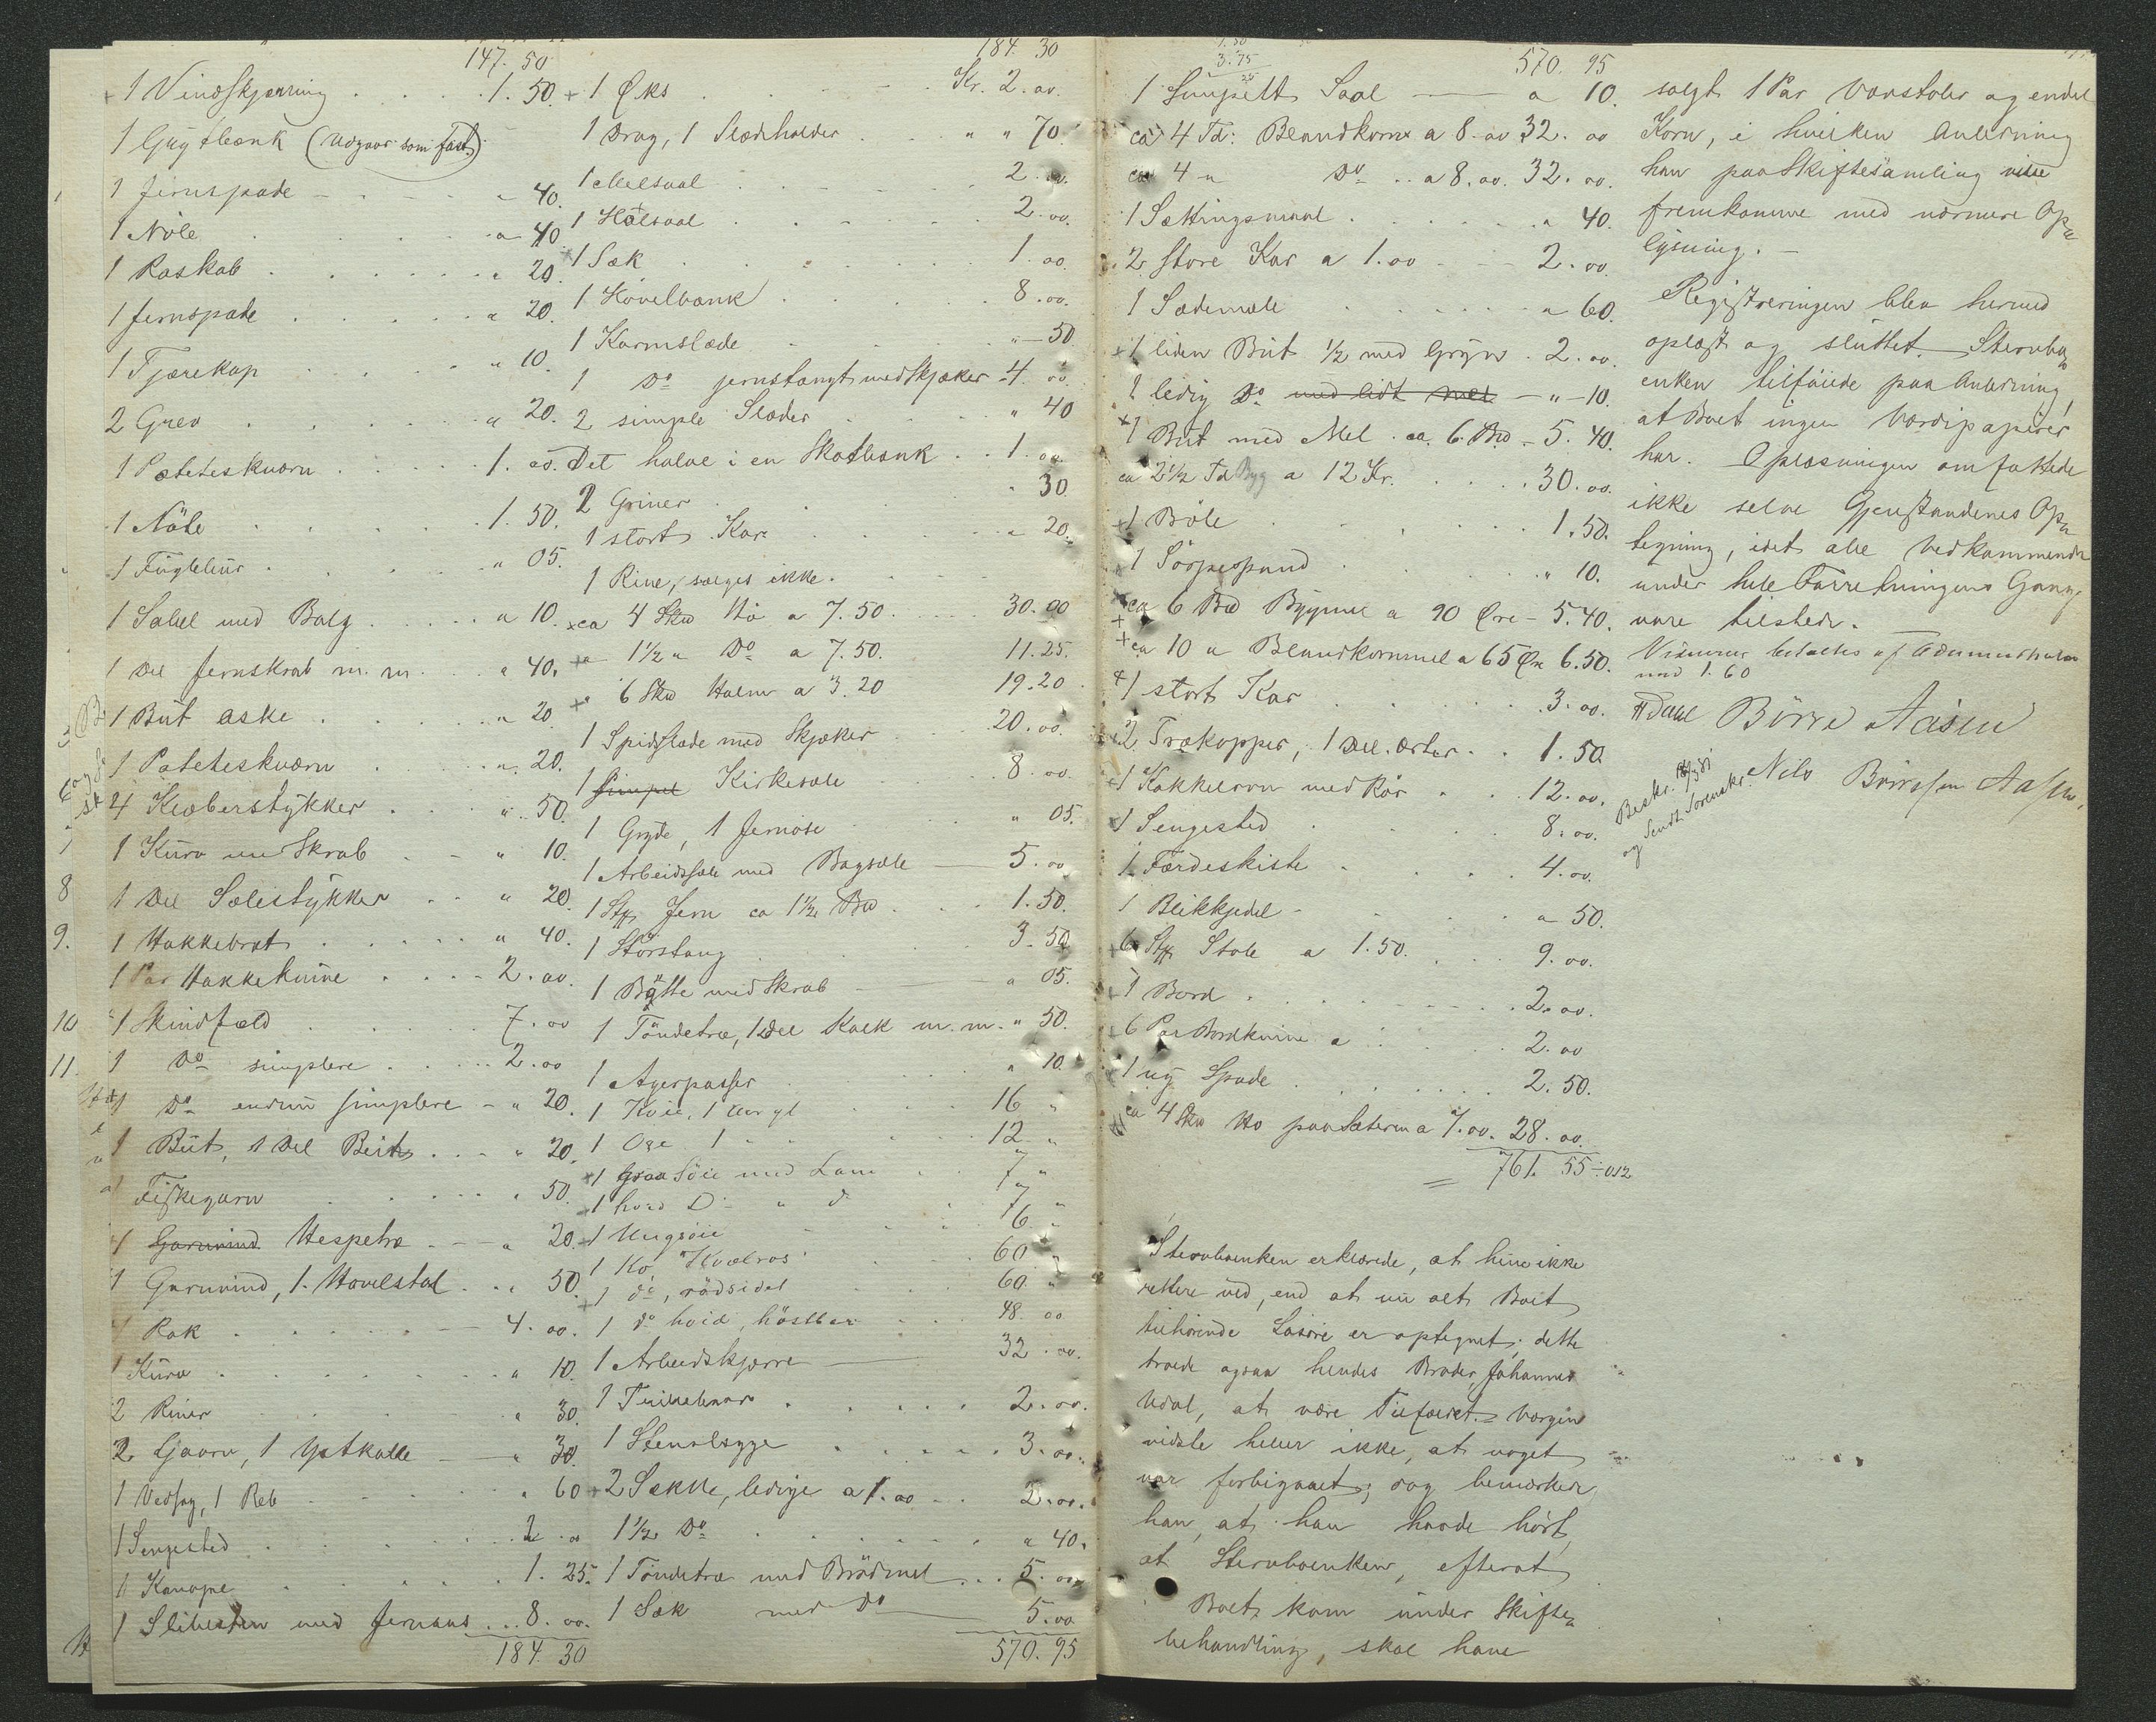 147. 50
+ 1 Vindskjærring . . . . 1. 50.
1 Gugtbænk (Udgaar som fast.)
1 Jernspade - - - " 40.
1 Nöle . . . " 40.
1 Raskab . . . . . " 20.
1 Jernspade . . . . . " 20.
1 Tjærekop . . . . " 10.
2 Grev . . . . . " 20.
1 Poteteskværn . . . . . 1. 00.
1 Nöle . . . . . 1. 50.
1 Fuglebuur . . . . . " 05.
1 Sabel med Balg . . . . . " 10.
1 Del Jernskrab m. m. " 40.
1 But Aske . . . . . " 20.
1 Poteteskværn . . . " 20.
4 Kleberstykker . . . . " 50.
1 Kurv med Skrab . - " 10.
1 Del Selestykker . . " 20.
1 Hakkebræt . . . . . " 40.
1 Par Hakkeknive . . . . 2. 00.
1 Skindfeld . . . . . 7. 00
1 Do simplere . . . . 2. 00
1 Do endnu simplere - " 20.
1 But, 1 Del Beits . . . " 20.
1 Fiskegarn . . . . " 50.
1 Garnvind Hespetræ - - - " 20.
1 Garnvind, 1 Hovelstol . . " 50.
1 Rok . . . . . 4. 00.
1 Kurv . . . . . . . " 10.
2 River . . . . " 30.
2 Gjaarv, 1 Ystkolle - " 30.
1 Vedsag, 1 Reb . . . . " 60
1 Sengested . . . . 2. 00
1 Kanape . . . . . 1. 25.
1 Slibesten med Jernaas . . . 8. 00.
184. 30
184. 30
+ 1 Øks . . . . Kr. 2. 00.
1 Drog, 1 Slædeholder . . " " 70.
1 Melsaal . . . . 2. 00.
1 Hölsaal . . . . 2. 00.
+ 1 Sæk . . . . 1. 00.
1 Hövelbænk . . . . . 8. 00.
1 Karmslæde . . . " - 50
1 Do jernstangt med Skjæker - 4. 00.
2 simple Slæder . . . . " 40
Det halve i en Skotbænk . . 1. 00.
2 Griner . . . . " 30.
1 stort Kar . . . . . " 20.
1 Rive, sælges ikke.
+ ca 4 Skd Hö a 7. 50. . . . 30. 00
+ " 1½ " Do a 7. 50. 11. 25.
+ " 6 Skd Halm a 3. 20 19. 20
1 Spidsslæde med Skjæker . . . 20. 00.
1 simpel Kirkesele . . . 8. 00.
1 Gryde, 1 Jernose . . . " 05.
1 Arbeidssele med Bagsele — 5. 00
1 Stk Jern ca 1½ Bd . . . 1. 50.
1 Störstang . . . 3. 50
1 Bötte med Skrab - — " 05.
1 Töndetræ, 1 Del Kalk m. m. " 50.
1 Agerpasser . . . " 10.
1 Kvie, 1 Aar gl . . . 16 "
1 Oxe 1 " . . . 12 "
+ 1 Graa Söie med Lam . . 7 "
+ 1 hvid D " d . . 7 "
+ 1 Ungsöie . . . 6. "
1 Ko, Hvalros . . . 60 "
+ 1 do, rödsidet . . . 60. "
1 do hvid, höstbær . . . 48. 00
1 Arbeidskjærre — 32. 00.
1 Trillebaar . . . . . . 2. 00.
1 Stenslægge . . . . . . 3. 00.
+ 2 Sække, ledige a 1. 00 - . . 2. 00.
1 ½ Do . . . . . . " 40.
1 Töndetræ med Brödmel . . . 5. 00.
1 Sæk med do — 5. 00
570. 95
3. 75
570. 95
1 Simpelt Saal — " 10.
ca 4 Td: Blandkorn a 8. 00 32. 00
ca 4 " Do . . a 8. 00. 32. 00.
1 Sættingsmaal . . . . " 40.
2 store Kar a 1. 00 - - 2. 00.
1 Sædemæle . . . . . " 60.
+ 1 liden But ½ med Gryn . 2. 00.
1 ledig Do med lidt mel - " - 10.
+ 1 But med Mel. ca. 6 Bd - 5. 40.
ca 2½ Td Byg a 12 Kr. . . . . 30. 00.
+ 1 Böle . . . . . 1. 50.
+ 1 Sörpespand . . . . " 10.
+ ca 6 Bd Bygmel a 90 Øre - 5. 40.
+ ca 10 " Blandkornmel a 65 Øre 6. 50.
+ 1 stort Kar . . . . . 3. 00.
2 Trækopper, 1 Del Erter . . 1. 50.
+ 1 Kakkelovn med Rör . . . 12. 00.
+ 1 Sengested . . . . 8. 00.
1 Færdeskiste . . . . 4. 00.
1 Blikkjedel - - . . " 50.
+ 6 Stk Stole a 1. 50. . . . 9. 00.
+ 1 Bord . . . . . . 2. 00.
+ 6 Par Bordknive a . . . 2. 00
+ 1 ny Spade . . . . 2. 50.
ca 4 Skd Hö paa Sæteren a 7. 00. 28. 00.
= 761. 55
Stervboenken erklærede, at hun ikke
rettere ved, end at nu alt Boet
tilhörende Lösöre er optegnet; dette
troede ogsaa hendes Broder, Johannes
Udal, at være Tilfældet. Værgen
vidste heller ikke, at noget
var forbigaaet; dog bemærkede
han, at han havde hört,
at Stervboenken, efterat
Boet kom under Skifte-
behandling, skal have
solgt 1 Par Vævstoler og endel
Korn, i hvilken Anledning
han paa Skiftesamling vilde
fremkomme med nærmere Op-
lysning. -
Registreringen blev hermed
oplæst og sluttet. Stervbo-
enken tilföiede paa Anledning,
at Boet ingen Værdipapirer
har. Oplæsningen omfattede
ikke selve Gjenstandenes Op-
tegning, idet alle Vedkommende
under hele Forretningens Gang
vare tilstede. —
Visnerne betaltes af
med 1. 60
Dahl Börre Aasen
Nils Börresen Aasen.
Beskr.
og Sendt Sorenskr.
8
9.
10
11.